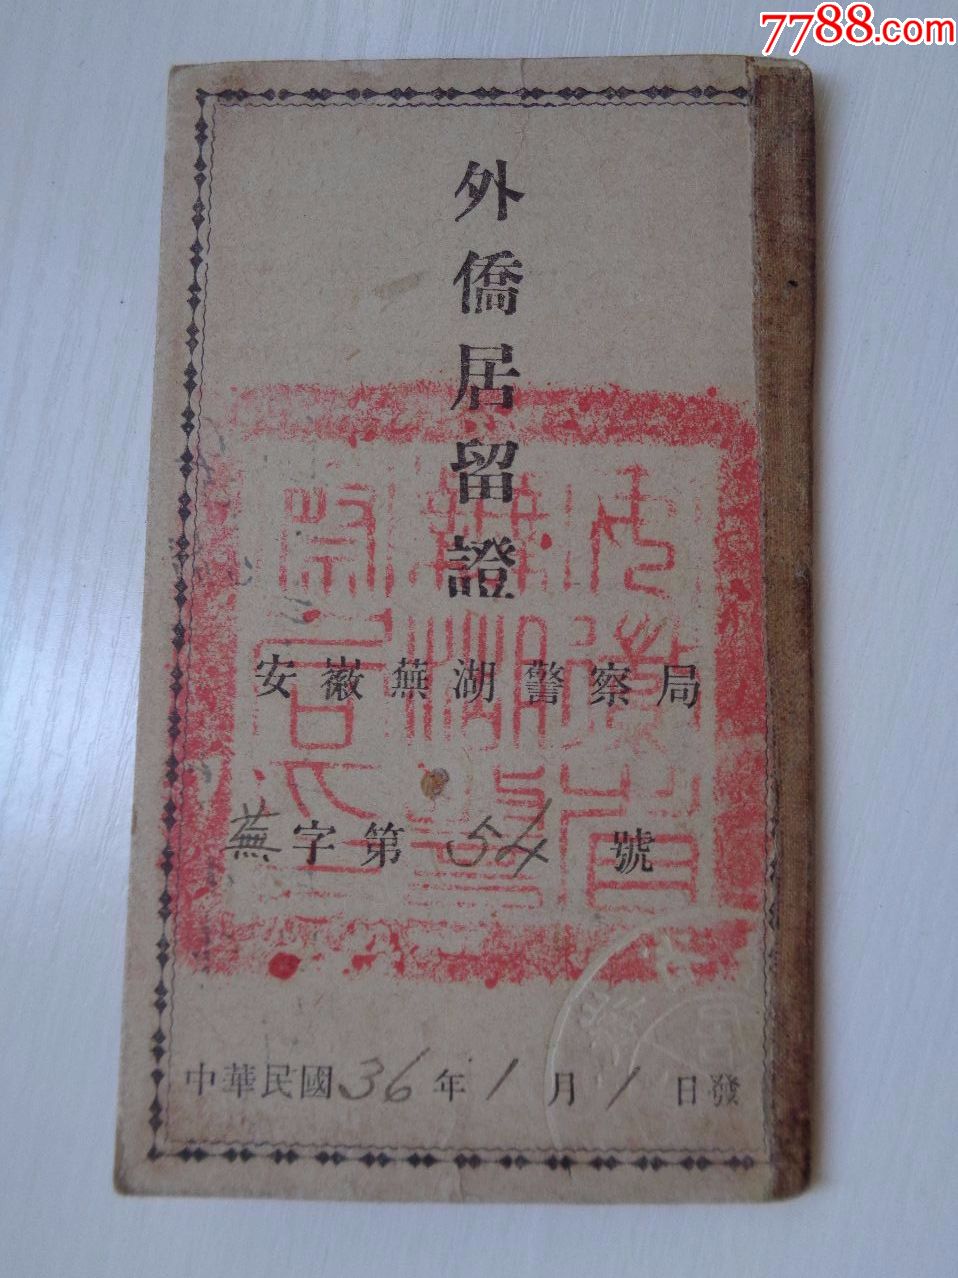 7788.com
外僑居留證
安徽蕪湖警察局
蕪字第54號
中華民國36年1月1日發